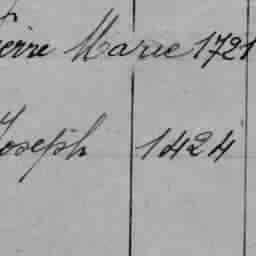 ierre Marie 1721
Joseph 1424